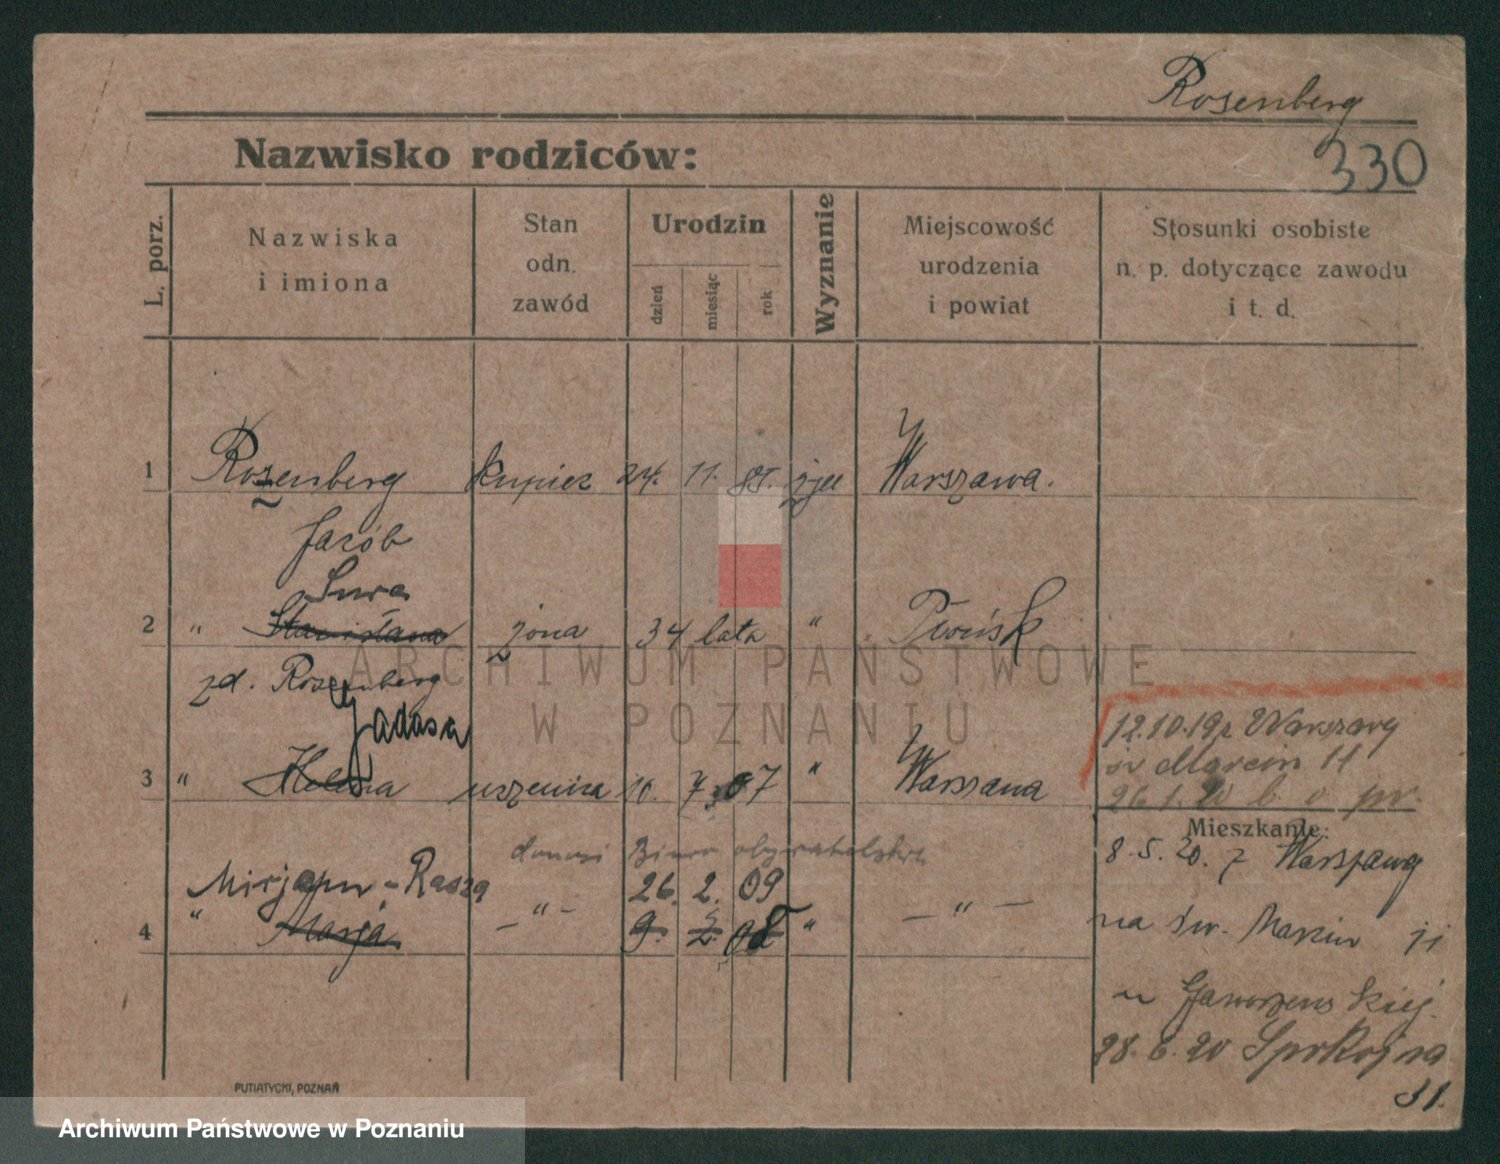 Rosenberg
330
Nazwisko rodziców:
L. porz.
Nazwiska
i imiona
Stan
odn.
zawód
Urodzin
dzień
miesiąc
rok
Wyznanie
Miejscowość
urodzenia
i powiat
Stosunki osobiste
n. p. dotyczące zawodu
i t. d.
1 Rozenberg kupiec 24. 11. 85. żyd Warszawa.
Jacób
Sura
2 " Stanisława żona 34 lata "
zd. Rozenberg
Hadasa
3 " Helena uczenica 10. 7. 07 " Warszawa
12.10.19 z Warszawy
św Marcin 11
26.1.20
Mieszkanie:
donosi Biuro obywatelskie
8.5.20. z Warszawy
Mirjam - Rasza 26. 2. 09
4 " Marja — " — 9. 2. 08 " — " —
na św. Marcin 11
u Jaworzenskiej.
28.6.20 Spokojna
31.
PUTIATYCKI, POZNAŃ
ARCHIWUM PAŃSTWOWE
W POZNANIU
Archiwum Państwowe w Poznaniu